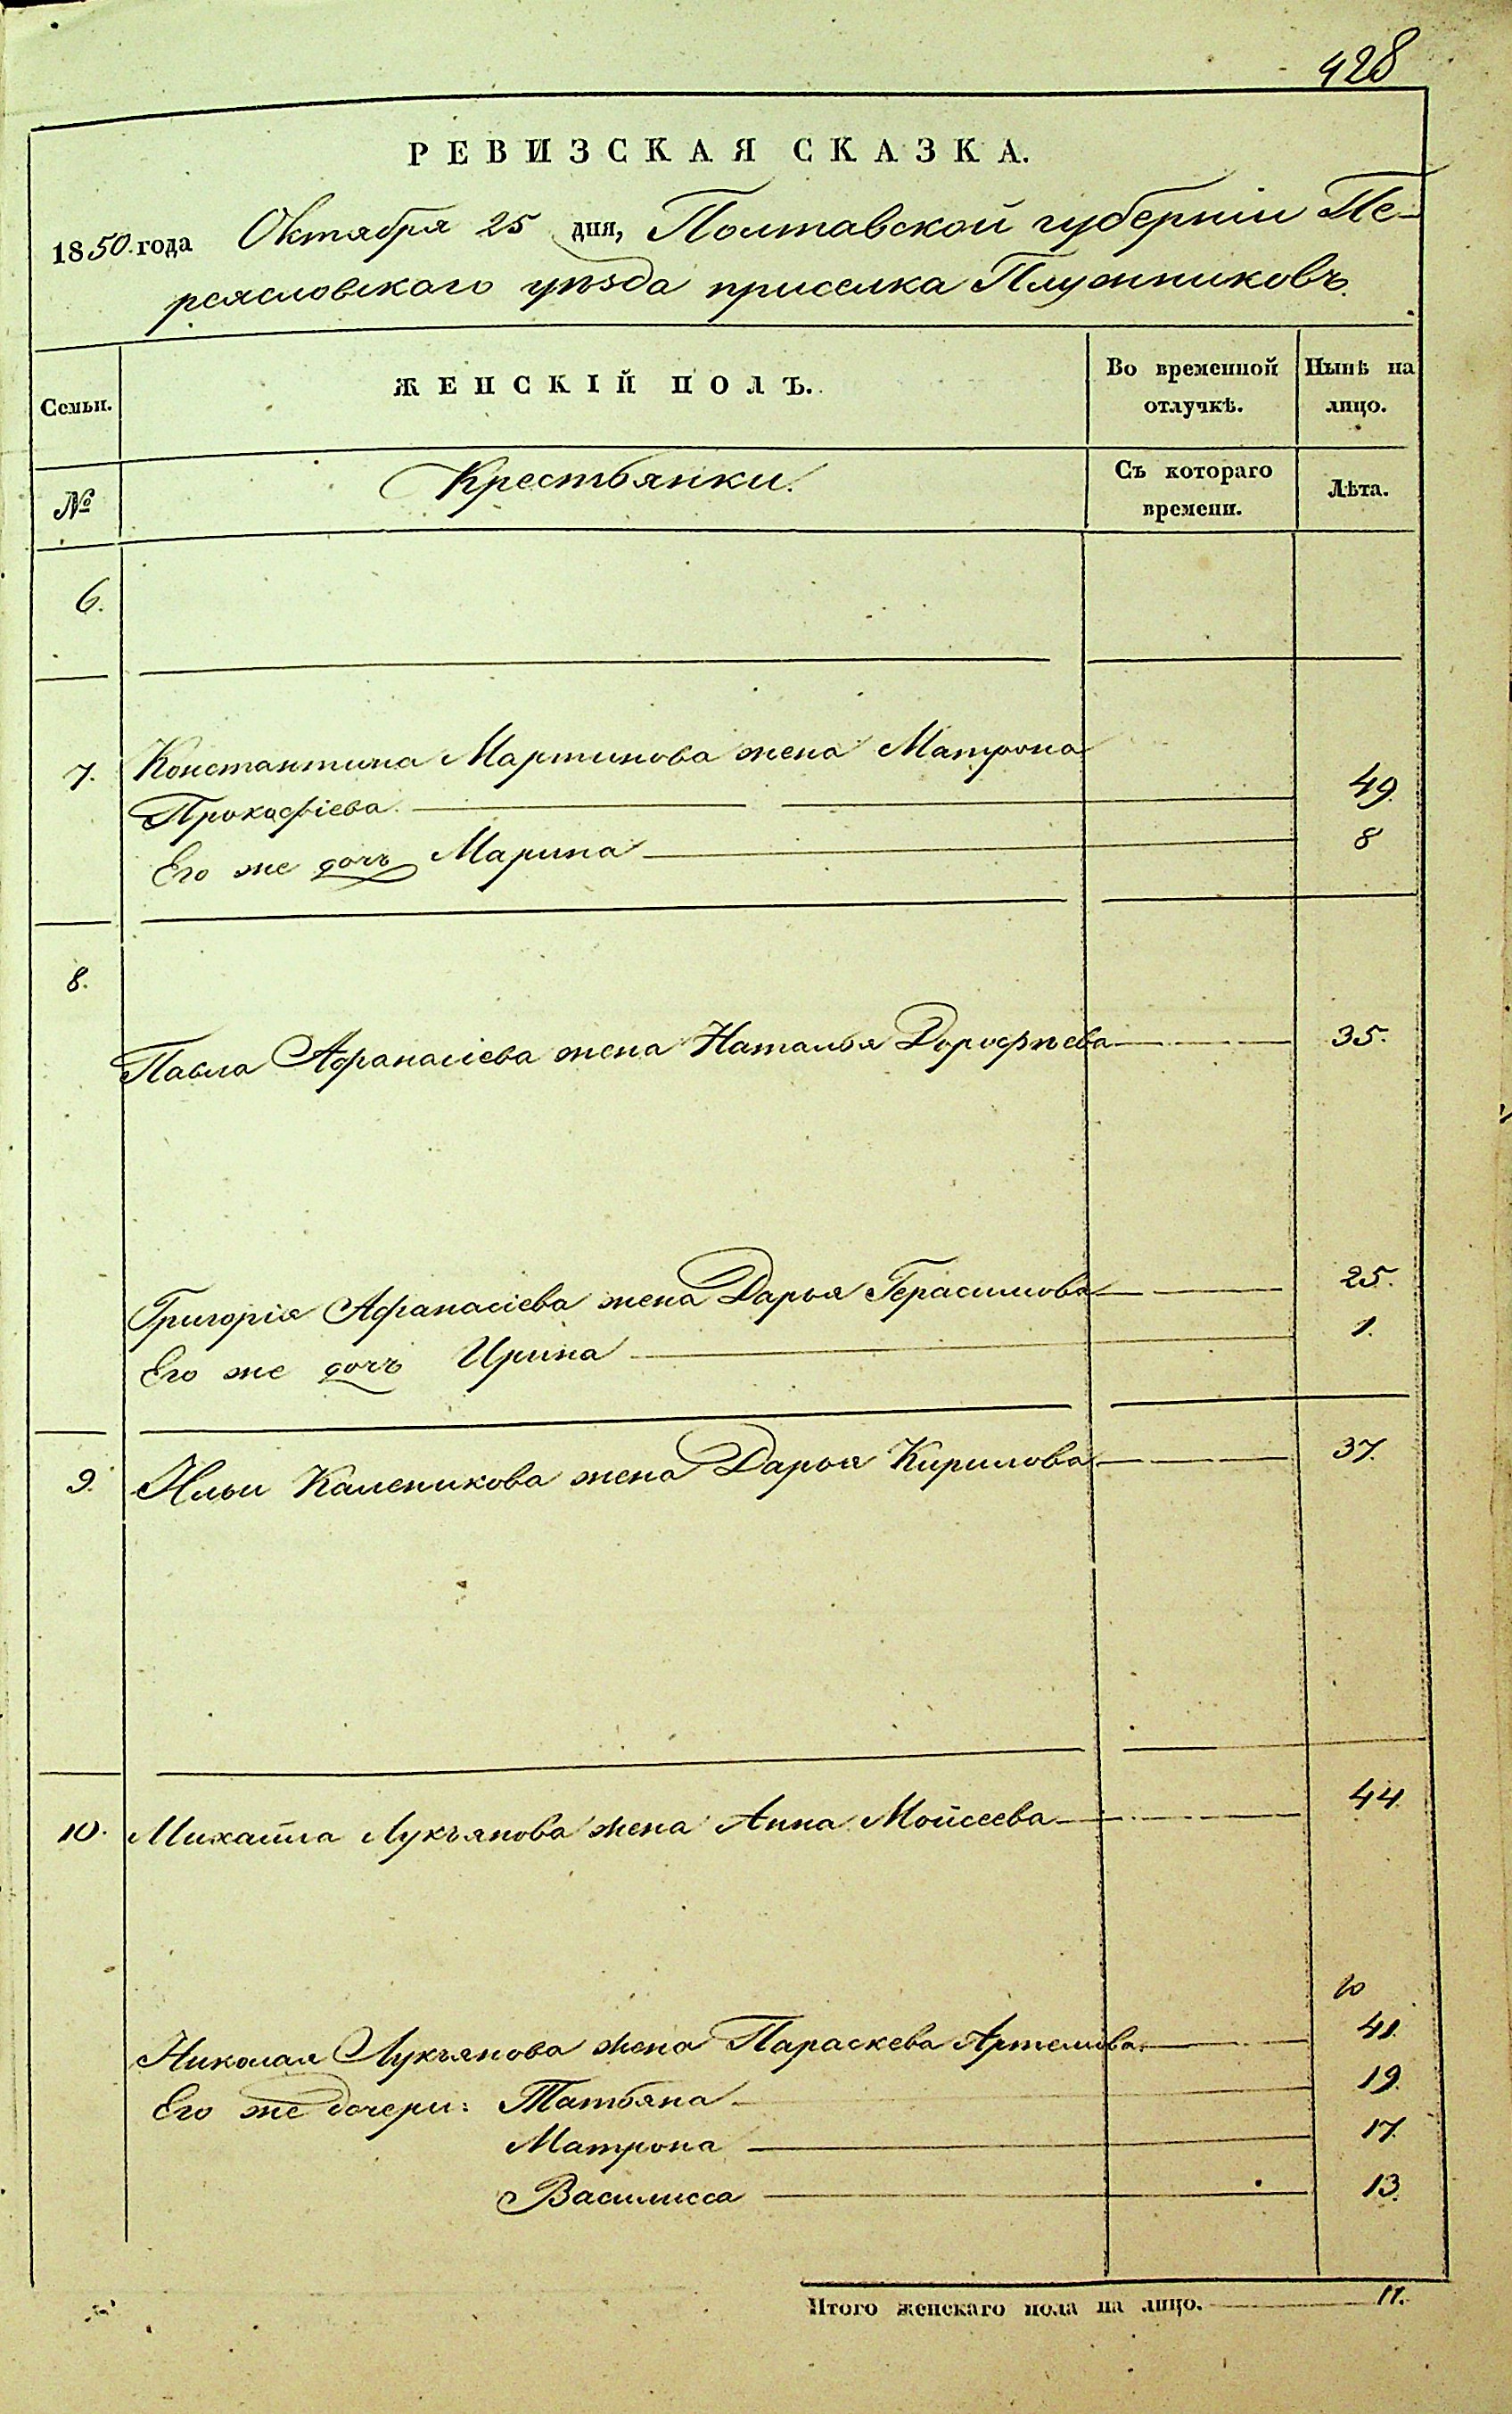 428
РЕВИЗСКАЯ СКАЗКА.
1850. года Октября 25 дня, Полтавской губерніи Пе-
реясловскаго уѣзда приселка Плужниковъ.
Семьи. ЖЕНСКІЙ ПОЛЪ. Во временной отлучкѣ. Нынѣ на лицо.
№ Крестьянки. Съ котораго времени. Лѣта.
6.
7. Константина Мартинова жена Матрона
Прокофіева 49.
Его же дочь Марина 8
8.
Павла Афанасіева жена Наталья Дорофѣева 35.
Григорія Афанасіева жена Дарья Герасимова 25.
Его же дочь Ирина 1.
9. Ильи Каленикова жена Дарья Кирилова 37.
10. Михайла Лукъянова жена Анна Мойсеева 44
Николая Лукъянова жена Параскева Артемова 41.
Его же дочери: Татьяна 19.
Матрона 17.
Василисса 13.
Итого женскаго пола на лицо. 11.